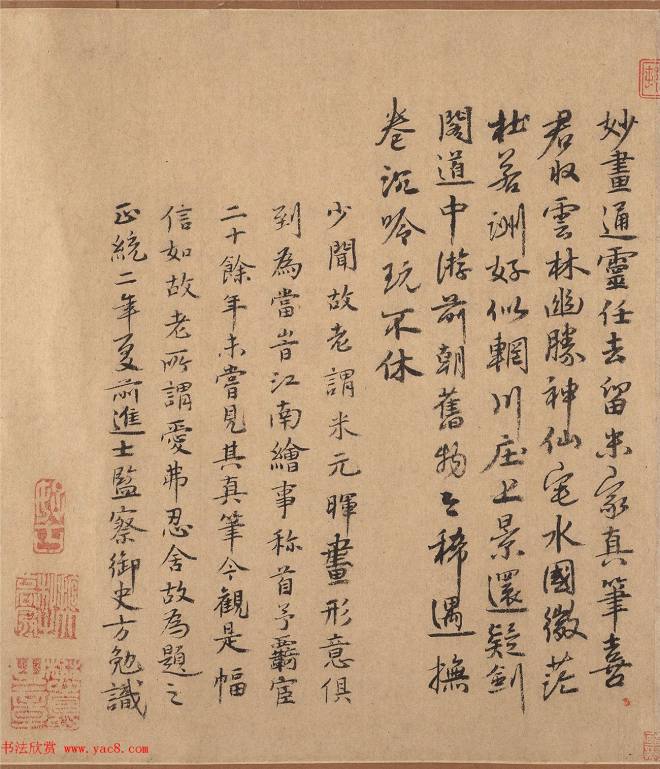 妙畫通靈任去留米家真筆喜
君收雲林幽勝神仙宅水國微茫
杜若洲好似輞川庄上景還疑劍
閣道中游前朝舊物今稀遇撫
卷沉吟玩不休
少聞故老謂米元暉畫形意俱
到為當旹江南繪事称首予覊宦
二十餘年未嘗見其真筆今觀是幅
信如故老所謂愛弗忍舍故為題之
正統二年夏前進士監察御史方勉識
书法欣赏 www.yac8.com